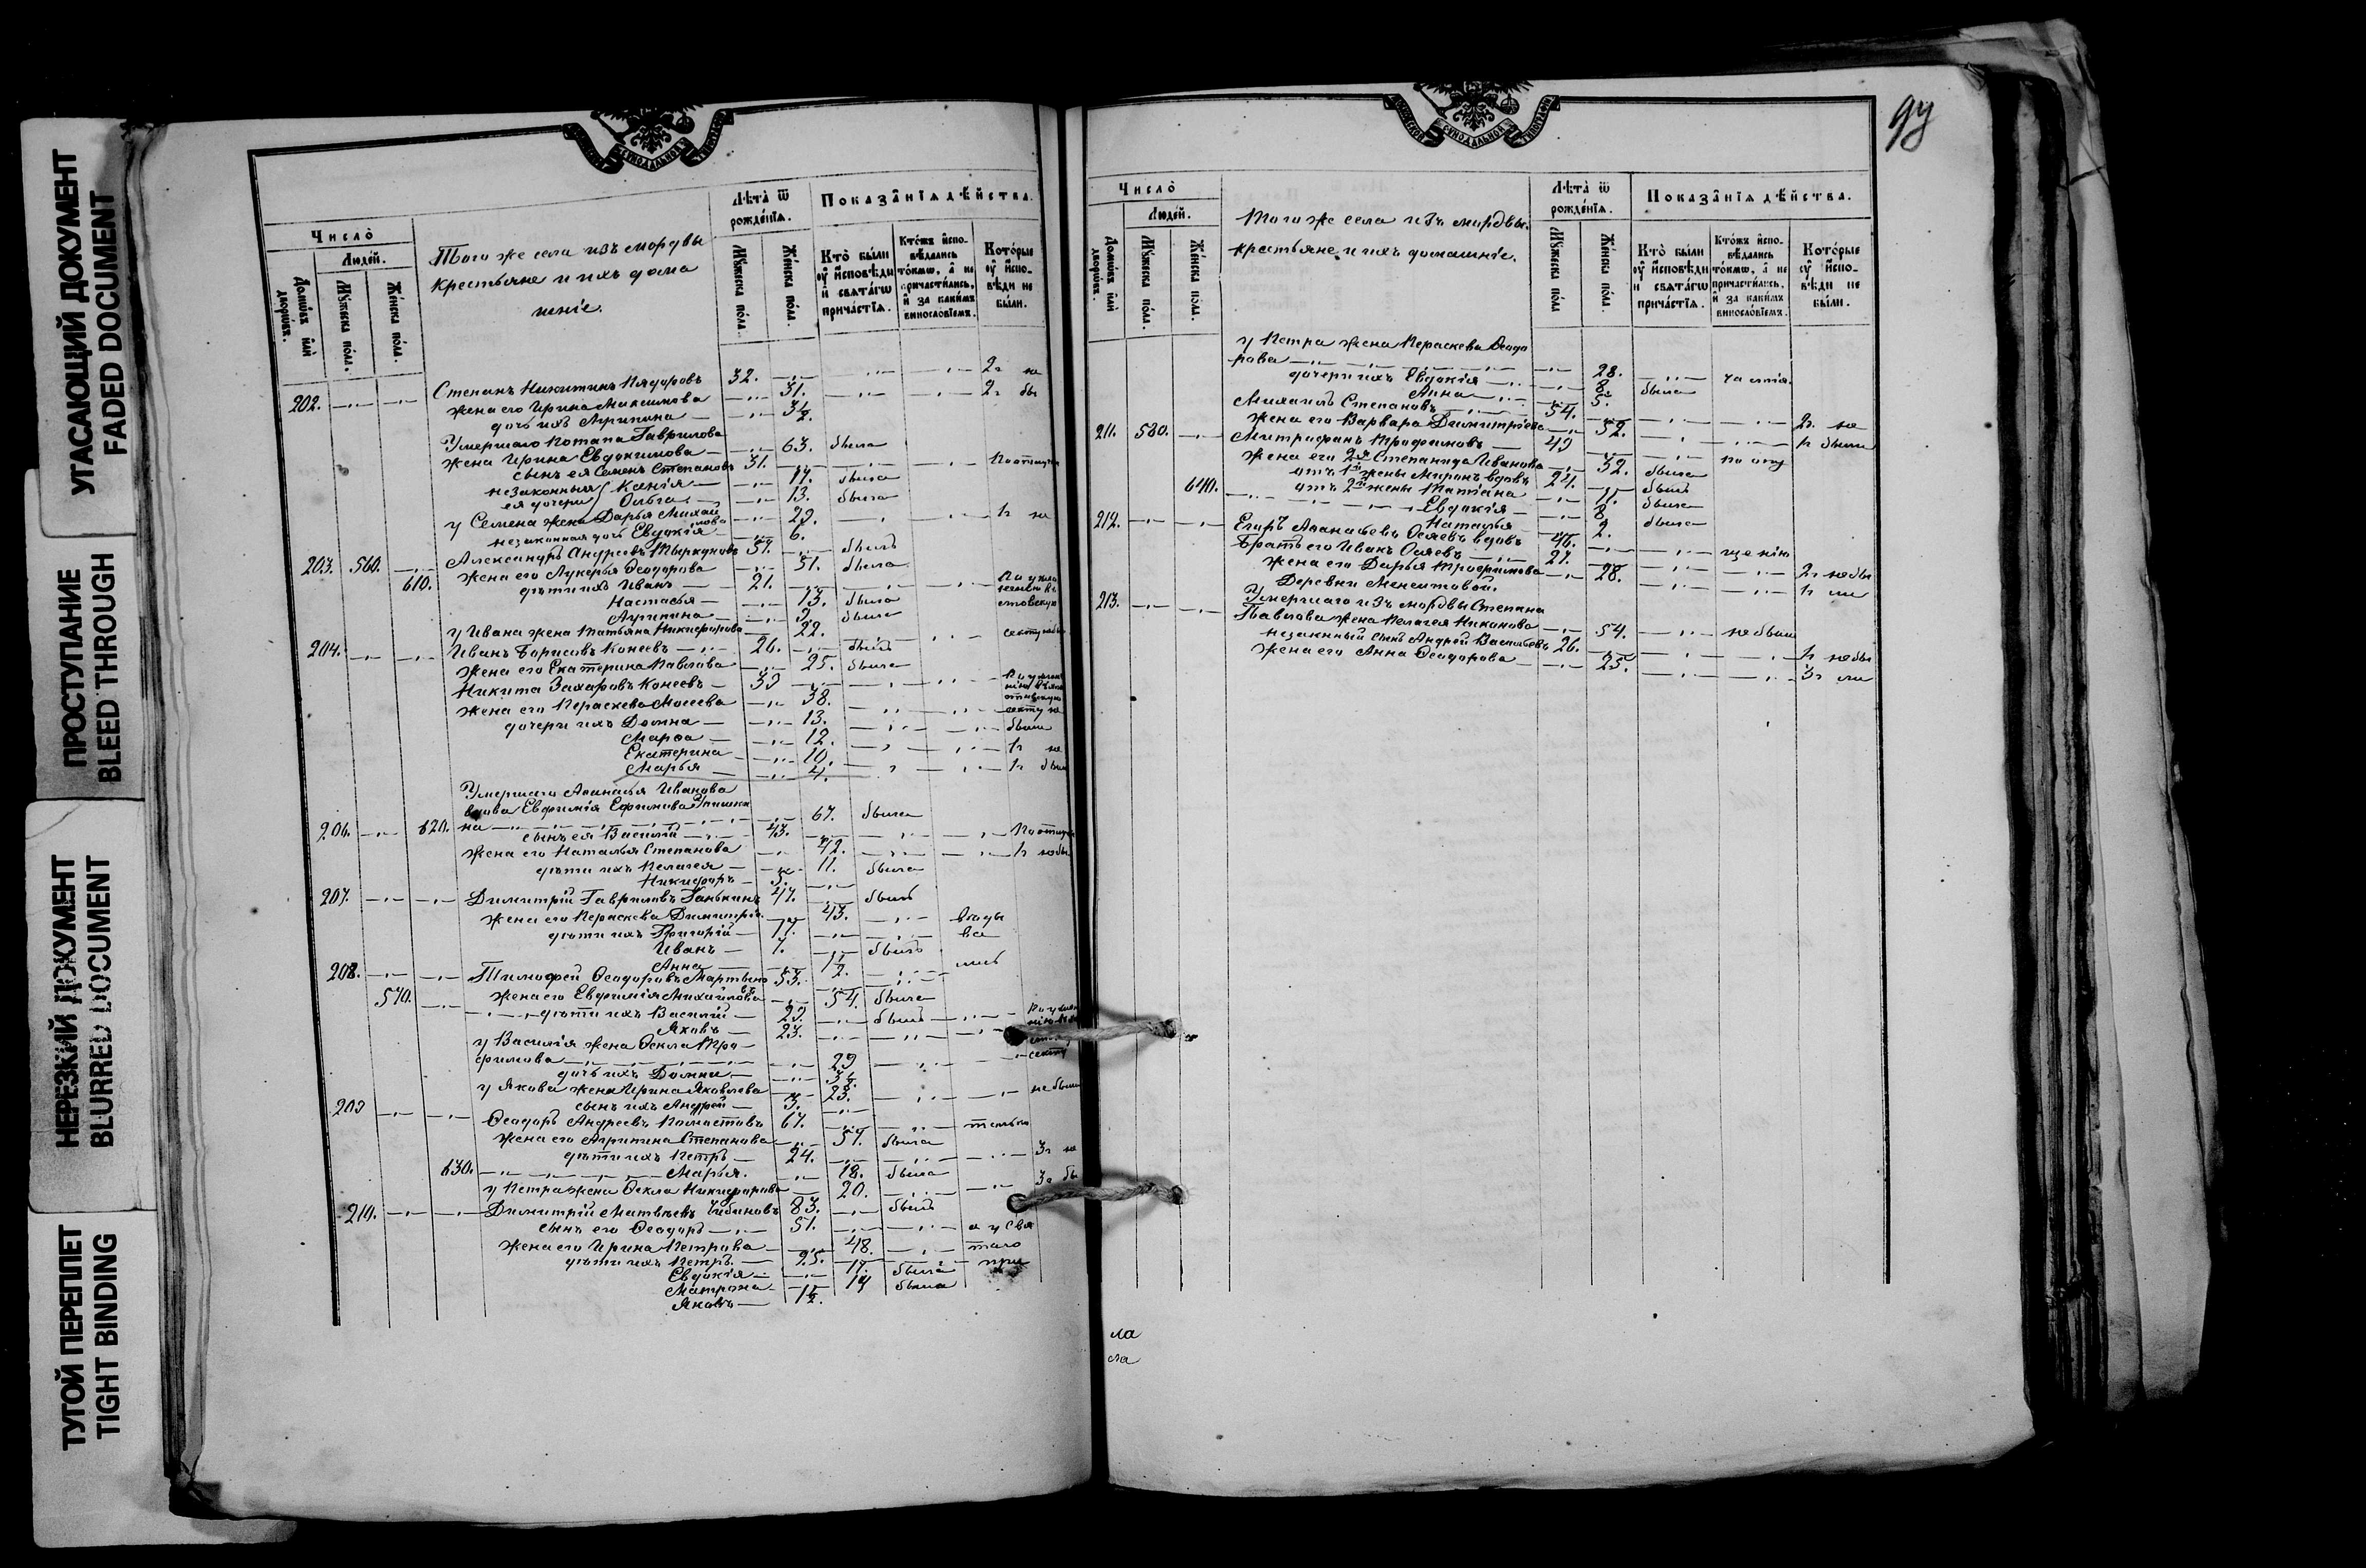 УГАСАЮЩИЙ ДОКУМЕНТ
FADED DOCUMENT
ПРОСТУПАНИЕ
BLEED THROUGH
НЕРЕЗКИЙ ДОКУМЕНТ
BLURRED DOCUMENT
ТУГОЙ ПЕРЕПЛЕТ
TIGHT BINDING
СѴНОДАЛЬНОЙ
Число̀
Людей.
Домѡвъ или дворѡвъ.
Мꙋжеска пола.
Женска пола.
Того же села изъ мордвы
крестьяне и ихъ дома
шніе.
Лѣта ѿ рожденїѧ.
Мꙋжеска пола.
Женска пола.
Показанїѧ дѣйства.
Кто были оу исповѣди и свѧтагѡ причастїѧ.
Ктожъ исповѣдались токмѡ, а не причастились, и за какимъ винословїемъ.
Которые оу исповѣди не были.
202. Степанъ Никитинъ 32. 2г не
жена его Ирина Максимова 31. 2г бы
дочь ихъ Агрипина 3½.
Умершаго Потапа Гаврилова
жена Ирина Евдокимова 63. была
сынъ ея Семенъ Степановъ 31.
незаконныя Ксенія 17. была
ея дочери Ольга 13. была
у Семена жена Дарья Михай
лова 29. 1г не
незаконная дочь Евдокія 6.
203. 560. Александръ Андреевъ 57. былъ
жена его Лукерья Ѳеодорова 51. была
610. дѣти ихъ Иванъ 21.
Настасья 13. была
Агрипина 9. была
у Ивана жена Татьяна Никифорова 22.
204. Иванъ Борисовъ Конеевъ 26. былъ
жена его Екатерина Павлова 25. была
Никита Захаровъ Конеевъ 39
жена его Пераскева Моисеева 38.
дочери ихъ Домна 13.
Марѳа 12.
Екатерина 10. 1г не
Марья 4. 1г были
Умершаго Аѳанасья Иванова
вдова Евфимія Ефимова
206. 620. на 67. была
сынъ ея Василій 43.
жена его Наталья Степанова 42. 1г небы
дѣти ихъ Пелагея 11. была
Никифоръ 5.
207. Димитрій Гавриловъ Ганькинъ 47. былъ
жена его Пераскева Димитрі. 43.
дѣти ихъ Григорій 17.
Иванъ 7. былъ
Анна 1½.
208. Тимофей Ѳеодоровъ Мартыно
въ 53.
570. жена его Евфимія Михайлова 54. была
дѣти ихъ Василій 29. былъ
Яковъ 23.
у Василія жена Ѳекла Тро-
фимова 29
дочь ихъ Домна 3½.
у Якова жена Ирина Яковлева 23. не были
сынъ ихъ Андрей 3.
209 Ѳеодоръ Андреевъ 67.
жена его Агрипина Степанова 57. была
дѣти ихъ Петръ 24. 3г не
630. Марья. 18. была
у Петра жена Ѳекла Никифорова 20. 3г бы
210. Димитрій Матвѣевъ 83. былъ
сынъ его Ѳеодоръ 51. а у Свя
жена его Ирина Петрова 48. таго
дѣти ихъ Петръ. 25. при
Евдокія 17. была
Матрона 14 была
Яковъ 1½.
СѴНОДАЛЬНОЙ ТИПОГРАФІИ
Число̀
Людей.
Домѡвъ или дворѡвъ.
Мꙋжеска пола.
Женска пола.
Того же села изъ мордвы
крестьяне и ихъ домашніе.
Лѣта ѿ рожденїѧ.
Мꙋжеска пола.
Женска пола.
Показанїѧ дѣйства.
Кто были оу исповѣди и свѧтагѡ причастїѧ.
Ктожъ исповѣдались токмѡ, а не причастились, и за какимъ винословїемъ.
Которые оу исповѣди не были.
у Петра жена Пераскева Ѳеодо
рова 28. частія.
дочери ихъ Евдокія 8. была
Анна 5.
Михаилъ Степановъ 54. 2г. не
жена его Варвара Димитріева 52. 1г были
211. 580. Митрофанъ Трофимовъ 49
жена его 2я Степанида Иванова 32. была
отъ 1й жены Миронъ вдовъ 24. былъ
640. отъ 2й жены Татіана 11. была
Евдокія 8. была
Наталья 2.
212. Егоръ Аѳанасьевъ Осяевъ вдовъ 46.
Братъ его Иванъ Осяевъ 27. 2г небы
жена его Дарья Трофимова 28. 1г ли
Деревни
213. Умершаго изъ мордвы Степана
Павлова жена Пелагея Никонова 54. небыла
незаконный сынъ Андрей Васильевъ 26. 1г небы
жена его Анна Ѳеодорова 25. 3г ли
ла
ла